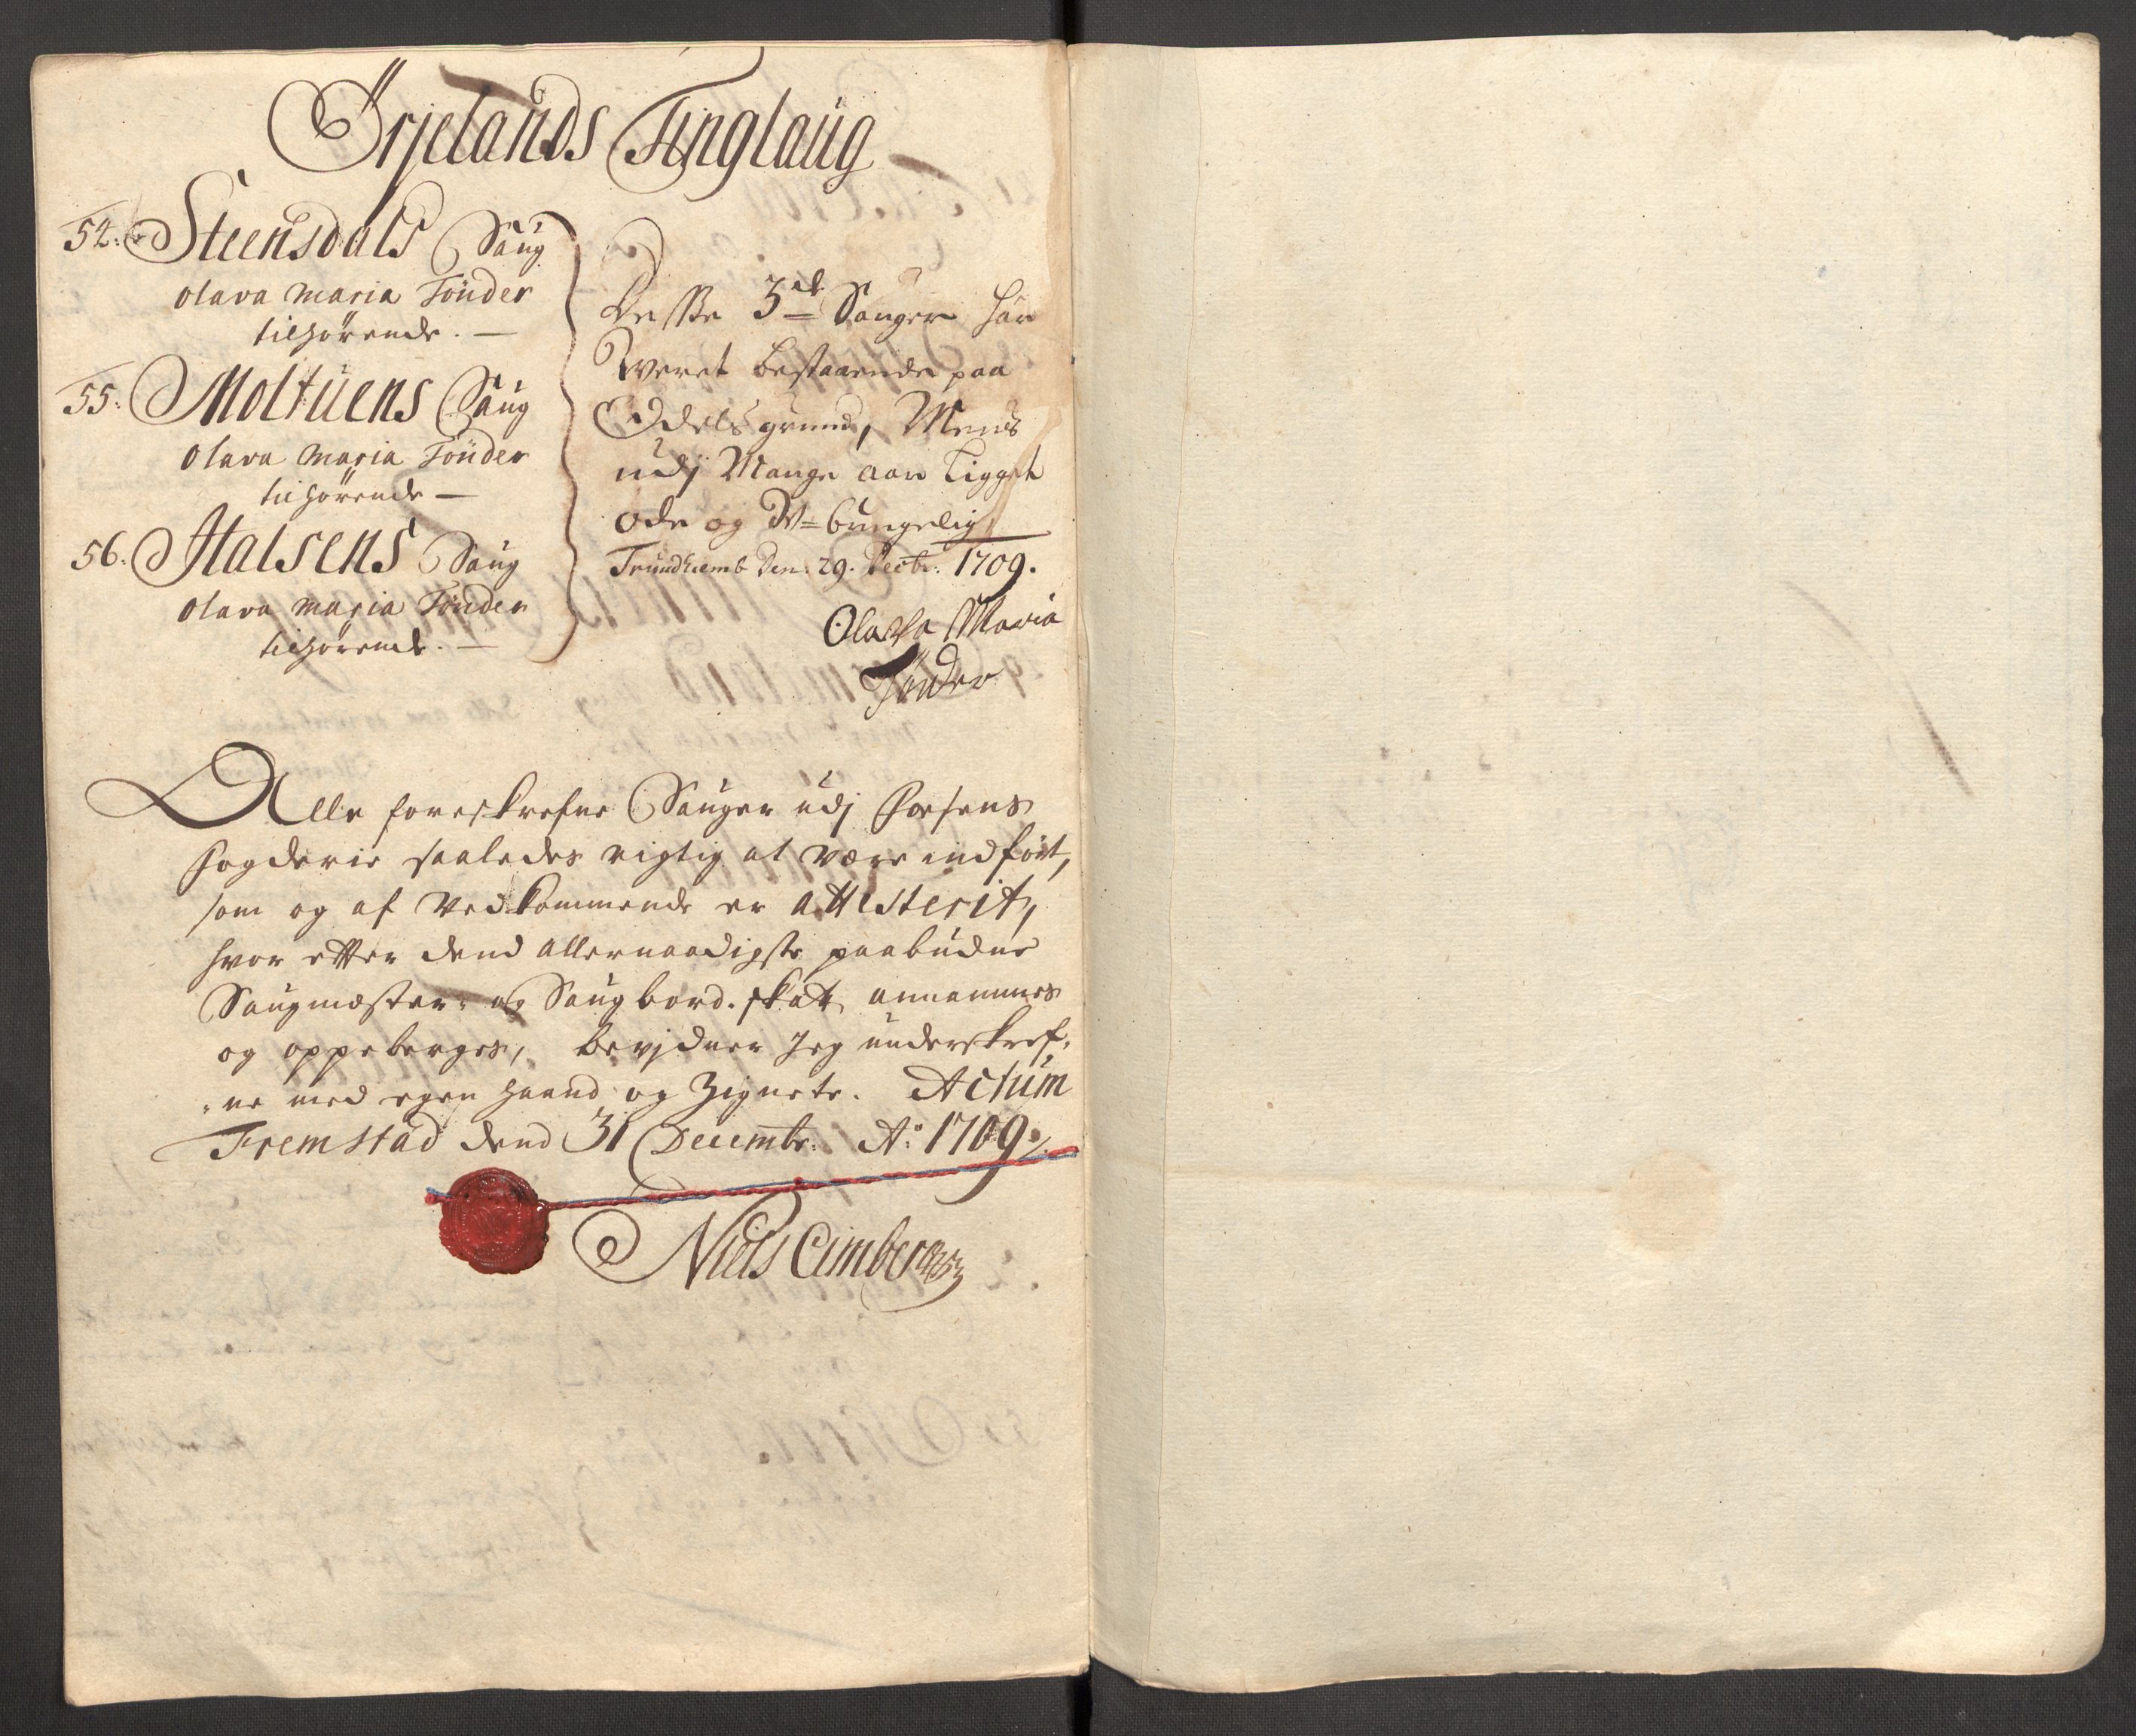 Örjelands Tinglaug
54. Steensdals Saug
Olava Maria Tönder
tilhörende. —
55. Moltuens Saug
Olava Maria Tönder
tilhörende —
56. Halsens Saug
Olava Maria Tönder
tilhörende. —
Disse 3de Sauger har
veret bestaaende paa
Odels grund, Mens
udj Mange aar Ligget
öde og V=brugelig,
Trundhiemb den: 29. Decbr. 1709.
Olava Maria
Tönder
Alle foreskrefne Sauger udj Fosens
fogderie saaledes rigtig at være indfört,
som og af vedkommende er attesterit,
hvor efter dend allernaadigste paabudne
Saugmester- og Saugbord-skat annammes
og oppeberges, bevjdner Jeg underskref-
-ne med egen haand og Zignete. Actum
Fremstad dend 31 Decembr: Ao 1709.
Niels Cimber